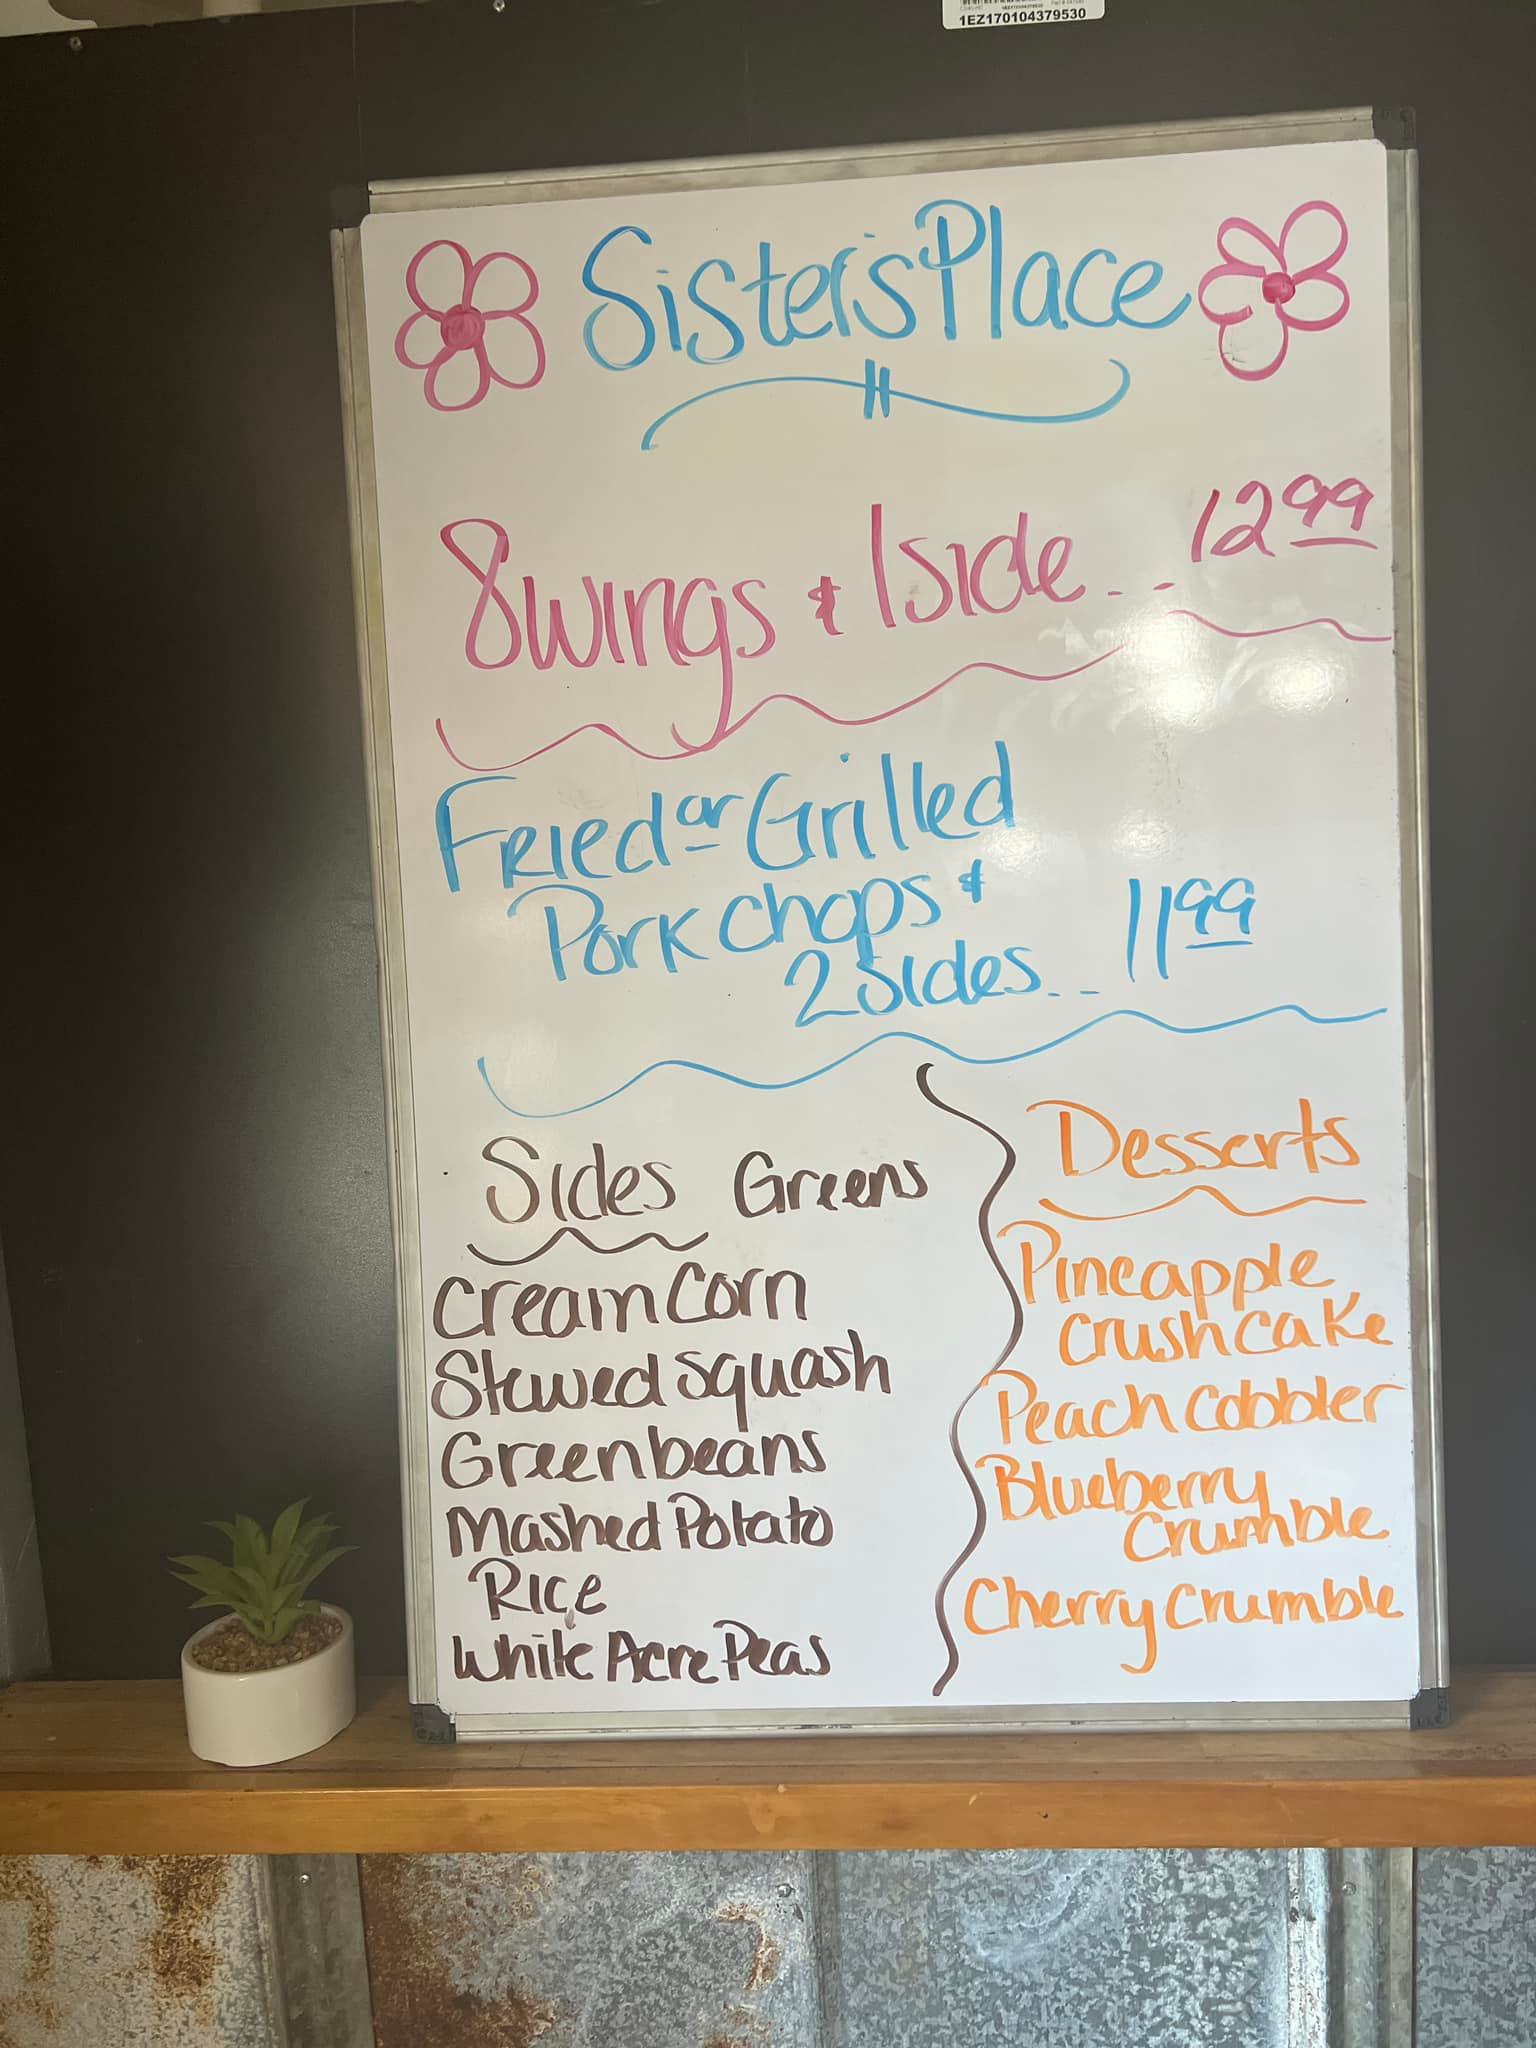 1EZ170104379530
Sister's Place
8 wings & 1 side... 12.99
Fried or Grilled
Pork chops &
2 sides... 11.99
Sides Greens
Cream Corn
Stewed squash
Green beans
Mashed Potato
Rice
White Acre Peas
Desserts
Pineapple
Crush cake
Peach Cobbler
Blueberry
Crumble
Cherry Crumble